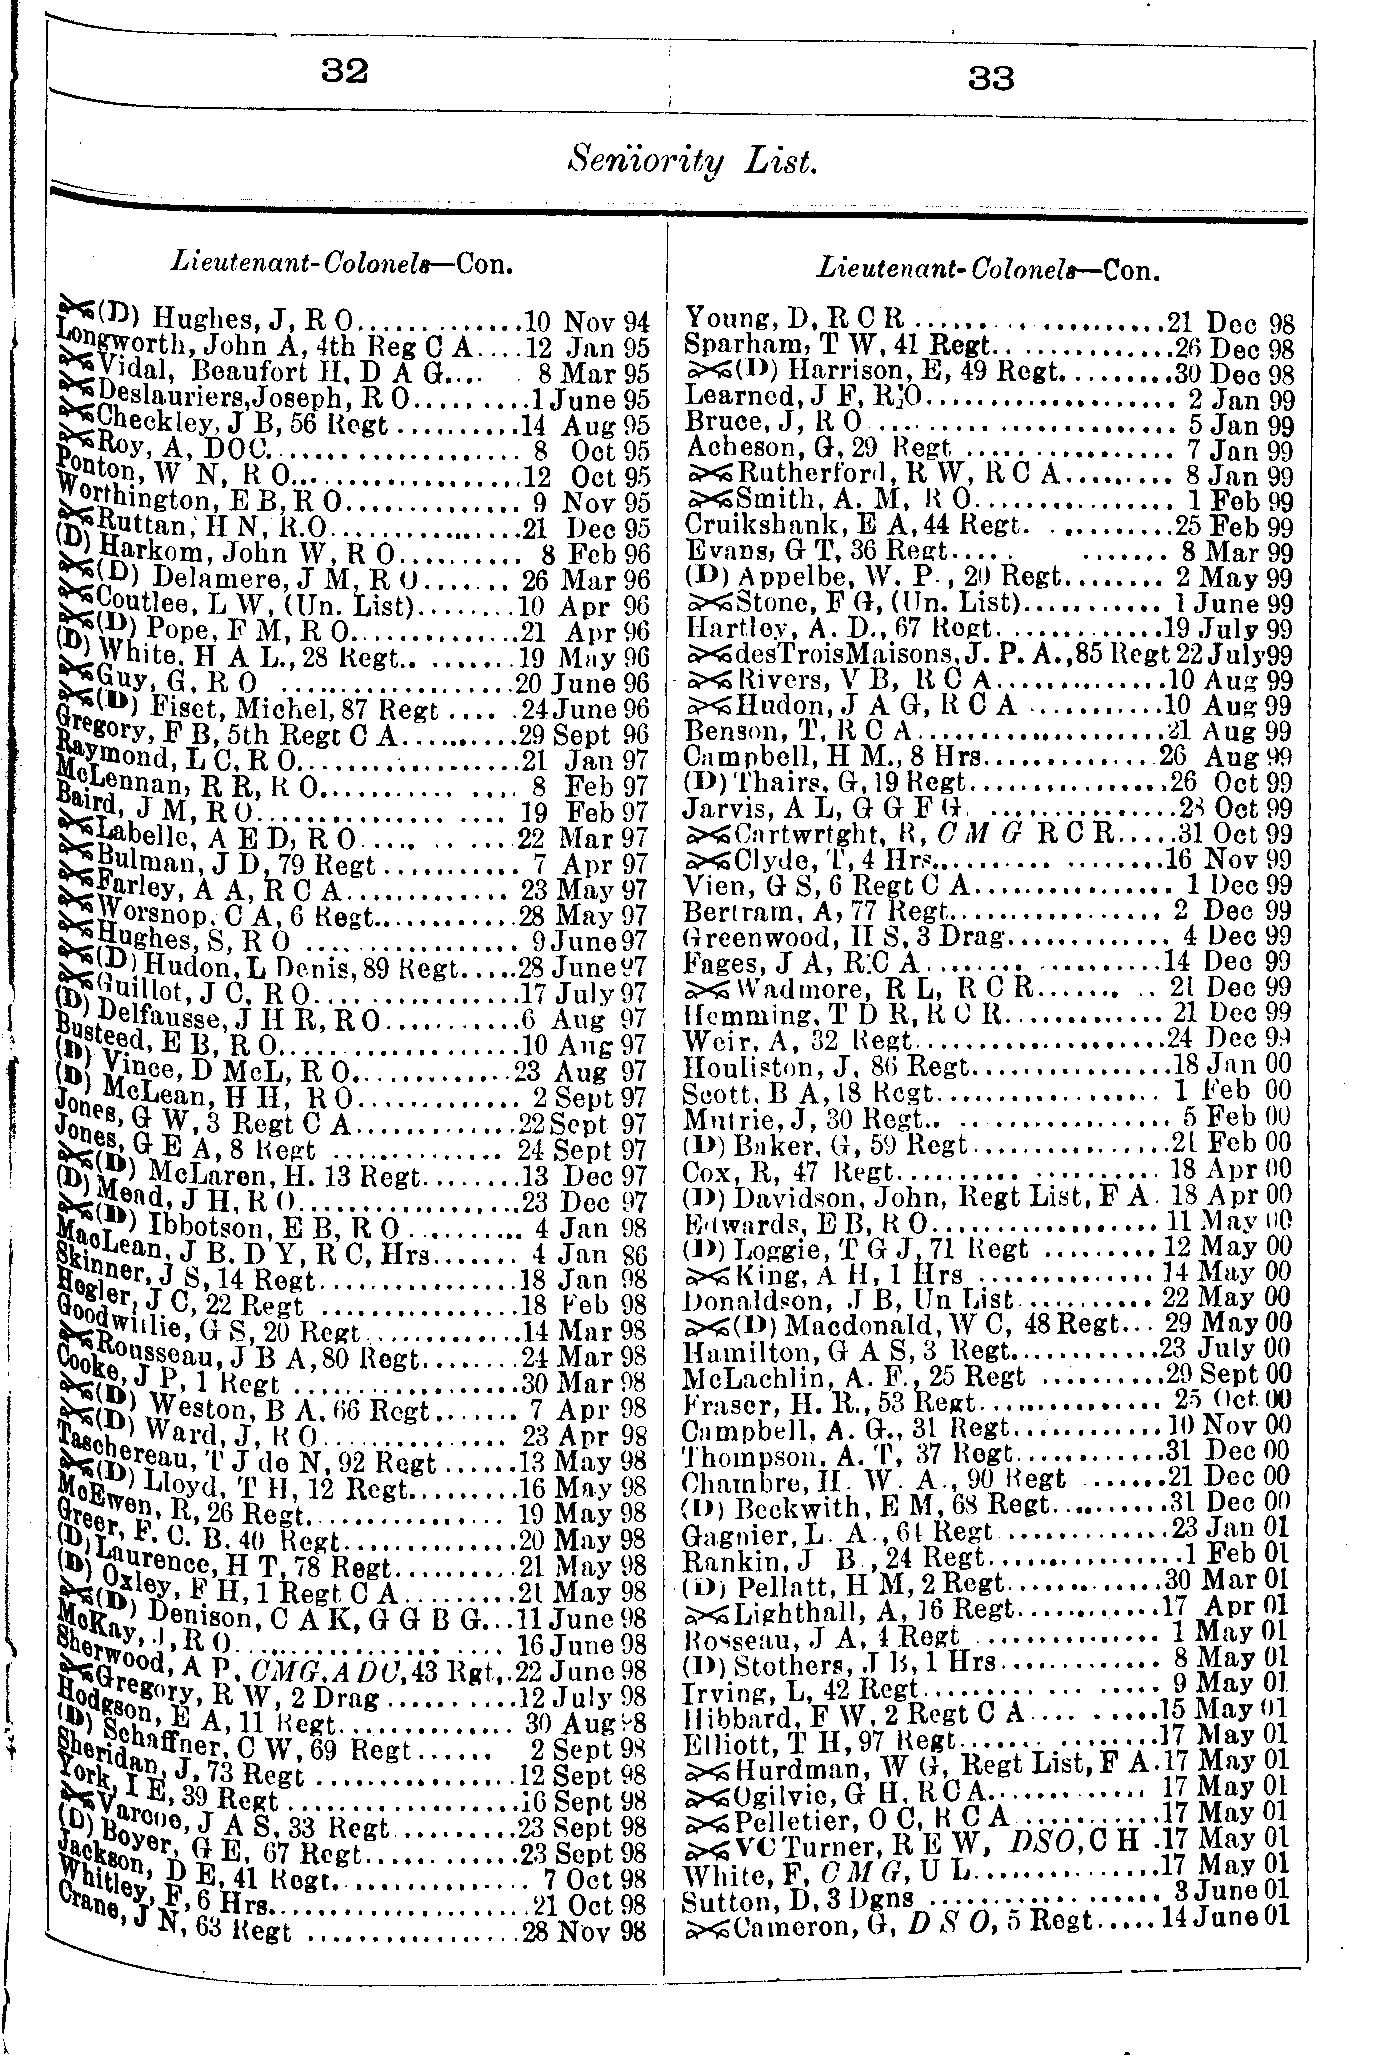 32
33
Seniority List.
Lieutenant-Colonels—Con.
(D) Hughes, J, R O..............10 Nov 94
Longworth, John A, 4th Reg C A....12 Jan 95
Vidal, Beaufort H, D A G.... . 8 Mar 95
Deslauriers,Joseph, R O.........1 June 95
Checkley, J B, 56 Regt..........14 Aug 95
Roy, A, DOC..................... 8 Oct 95
Ponton, W N, R O..................12 Oct 95
Worthington, E B, R O.............. 9 Nov 95
Ruttan, H N, R.O................21 Dec 95
(D) Harkom, John W, R O.......... 8 Feb 96
(D) Delamere, J M, R O....... 26 Mar 96
Coutlee, L W, (Un. List)........10 Apr 96
(D) Pope, F M, R O..............21 Apr 96
(D) White, H A L., 28 Regt.. .......19 May 96
Guy, G, R O ...................20 June 96
(D) Fiset, Michel, 87 Regt .... .24 June 96
Gregory, F B, 5th Regt C A..........29 Sept 96
Raymond, L C, R O..................21 Jan 97
McLennan, R R, R O............ .... 8 Feb 97
Baird, J M, R O................ .... 19 Feb 97
Labelle, A E D, R O..... .. ......22 Mar 97
Bulman, J D, 79 Regt........... 7 Apr 97
Farley, A A, R C A............. 23 May 97
Worsnop, C A, 6 Regt............28 May 97
Hughes, S, R O .... ............. 9 June 97
(D) Hudon, L Denis, 89 Regt.....28 June 97
Guillot, J C, R O.................17 July 97
(D) Delfausse, J H R, R O...........6 Aug 97
Busteed, E B, R O...................10 Aug 97
(D) Vince, D McL, R O.............23 Aug 97
(D) McLean, H H, R O............. 2 Sept 97
Jones, G W, 3 Regt C A.............22 Sept 97
Jones, G E A, 8 Regt ............. 24 Sept 97
(D) McLaren, H. 13 Regt........13 Dec 97
(D) Mead, J H, R O..................23 Dec 97
(D) Ibbotson, E B, R O.......... 4 Jan 98
MacLean, J B. D Y, R C, Hrs....... 4 Jan 86
Skinner, J S, 14 Regt...............18 Jan 98
Hegler, J C, 22 Regt ...............18 Feb 98
Goodwillie, G S, 20 Regt............14 Mar 98
Rousseau, J B A, 80 Regt........24 Mar 98
Cooke, J P, 1 Regt .................30 Mar 98
(D) Weston, B A, 66 Regt....... 7 Apr 98
(D) Ward, J, R O............... 23 Apr 98
Taschereau, T J de N, 92 Regt......13 May 98
(D) Lloyd, T H, 12 Regt.........16 May 98
McEwen, R, 26 Regt................ 19 May 98
Greer, F. C. B. 40 Regt.............20 May 98
(D) Laurence, H T, 78 Regt..........21 May 98
(D) Oxley, F H, 1 Regt C A.........21 May 98
(D) Denison, C A K, G G B G...11 June 98
McKay, J, R O..................... 16 June 98
Sherwood, A P, CMG, ADC, 43 Rgt,.22 June 98
Gregory, R W, 2 Drag ..........12 July 98
Hodgson, E A, 11 Regt............. 30 Aug 98
(D) Schaffner, C W, 69 Regt...... 2 Sept 98
Sheridan, J, 73 Regt ...............12 Sept 98
York, I E, 39 Regt .................16 Sept 98
Varcoe, J A S, 33 Regt..........23 Sept 98
(D) Boyer, G E, 67 Regt............23 Sept 98
Jackson, D E, 41 Regt............... 7 Oct 98
Whitley, F, 6 Hrs....................21 Oct 98
Crane, J N, 63 Regt ................28 Nov 98
Lieutenant-Colonels—Con.
Young, D, R C R ...... . ..........21 Dec 98
Sparham, T W, 41 Regt.. ............26 Dec 98
(D) Harrison, E, 49 Regt.........30 Dec 98
Learned, J F, R O.................... 2 Jan 99
Bruce, J, R O ... ................... 5 Jan 99
Acheson, G, 29 Regt ..... ........... 7 Jan 99
Rutherford, R W, R C A......... 8 Jan 99
Smith, A. M, R O................. 1 Feb 99
Cruikshank, E A, 44 Regt. . .........25 Feb 99
Evans, G T, 36 Regt..... . ....... 8 Mar 99
(D) Appelbe, W. P., 20 Regt........ 2 May 99
Stone, F G, (Un. List)........... 1 June 99
Hartley, A. D., 67 Regt..............19 July 99
desTroisMaisons, J. P. A., 85 Regt 22 July 99
Rivers, V B, R C A..............10 Aug 99
Hudon, J A G, R C A ...........10 Aug 99
Benson, T, R C A.....................21 Aug 99
Campbell, H M., 8 Hrs..............26 Aug 99
(D) Thairs, G, 19 Regt...............26 Oct 99
Jarvis, A L, G G F G. ................28 Oct 99
Cartwrtght, R, C M G R C R.....31 Oct 99
Clyde, T, 4 Hrs........... ........16 Nov 99
Vien, G S, 6 Regt C A................ 1 Dec 99
Bertram, A, 77 Regt................ 2 Dec 99
Greenwood, H S, 3 Drag............. 4 Dec 99
Fages, J A, R.C A........ ..........14 Dec 99
Wadmore, R L, R C R....... .. 21 Dec 99
Hemming, T D R, R C R............. 21 Dec 99
Weir, A, 32 Regt....................24 Dec 99
Houliston, J, 86 Regt................18 Jan 00
Scott, B A, 18 Regt.................. 1 Feb 00
Mutrie, J, 30 Regt.. .. .............. 5 Feb 00
(D) Baker, G, 59 Regt................21 Feb 00
Cox, R, 47 Regt.......... .......... 18 Apr 00
(D) Davidson, John, Regt List, F A. 18 Apr 00
Edwards, E B, R O.................. 11 May 00
(D) Loggie, T G J, 71 Regt ......... 12 May 00
King, A H, 1 Hrs .............. 14 May 00
Donaldson, J B, Un List............ 22 May 00
(D) Macdonald, W C, 48 Regt... 29 May 00
Hamilton, G A S, 3 Regt............23 July 00
McLachlin, A. F., 25 Regt ..........29 Sept 00
Fraser, H. R., 53 Regt............... 25 Oct. 00
Campbell, A. G., 31 Regt............10 Nov 00
Thompson, A. T, 37 Regt............31 Dec 00
Chambre, H. W. A., 90 Regt ......21 Dec 00
(D) Beckwith, E M, 68 Regt.........31 Dec 00
Gagnier, L. A., 61 Regt .............23 Jan 01
Rankin, J B., 24 Regt.................1 Feb 01
(D) Pellatt, H M, 2 Regt............30 Mar 01
Lighthall, A, 16 Regt............17 Apr 01
Rosseau, J A, 4 Regt ............... 1 May 01
(D) Stothers, J B, 1 Hrs............. 8 May 01
Irving, L, 42 Regt.......... ... ..... 9 May 01
Hibbard, F W, 2 Regt C A.... . .....15 May 01
Elliott, T H, 97 Regt....... .........17 May 01
Hurdman, W G, Regt List, F A.17 May 01
Ogilvie, G H, R C A.......... ... 17 May 01
Pelletier, O C, R C A ............17 May 01
VC Turner, R E W, DSO, C H .17 May 01
White, F, C M G, U L...............17 May 01
Sutton, D, 3 Dgns ............. ...... 3 June 01
Cameron, G, D S O, 5 Regt.....14 June 01